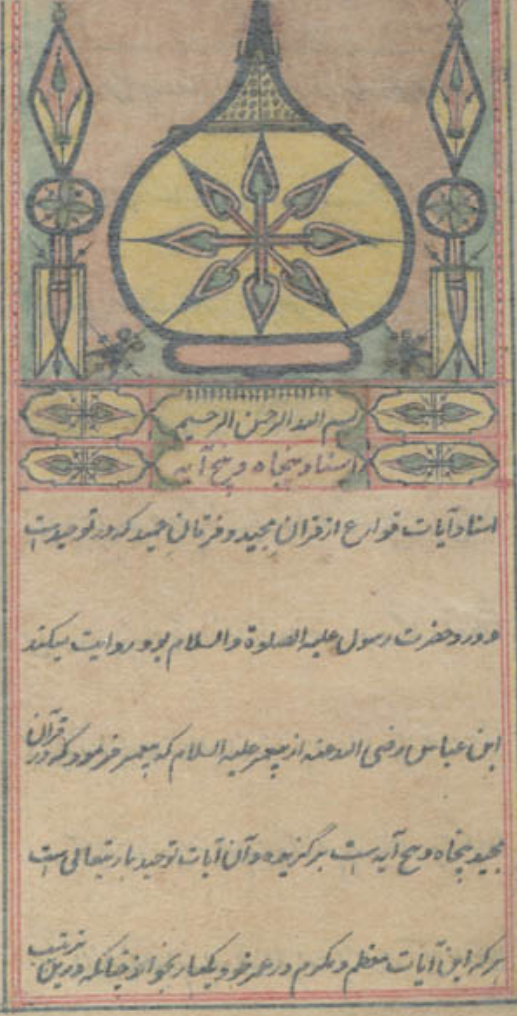 بسم الله الرحمن الرحیم
اسناد پنجاه و پنج آیه
اسناد آیات قوارع از قرآن مجید و فرقان حمید که در توحیدست
و ورد حضرت رسول علیه الصلوة والسلام بود روایت میکند
ابن عباس رضی الله عنه از پیغمبر علیه السلام که پیغمبر فرمود که در قرآن
مجید پنجاه و پنج آیه است برگزیده و آن آیات توحید باریتعالی است
هر که این آیات معظم و مکرم در عمر خود یکبار بخواند چنانکه درین ترتیب